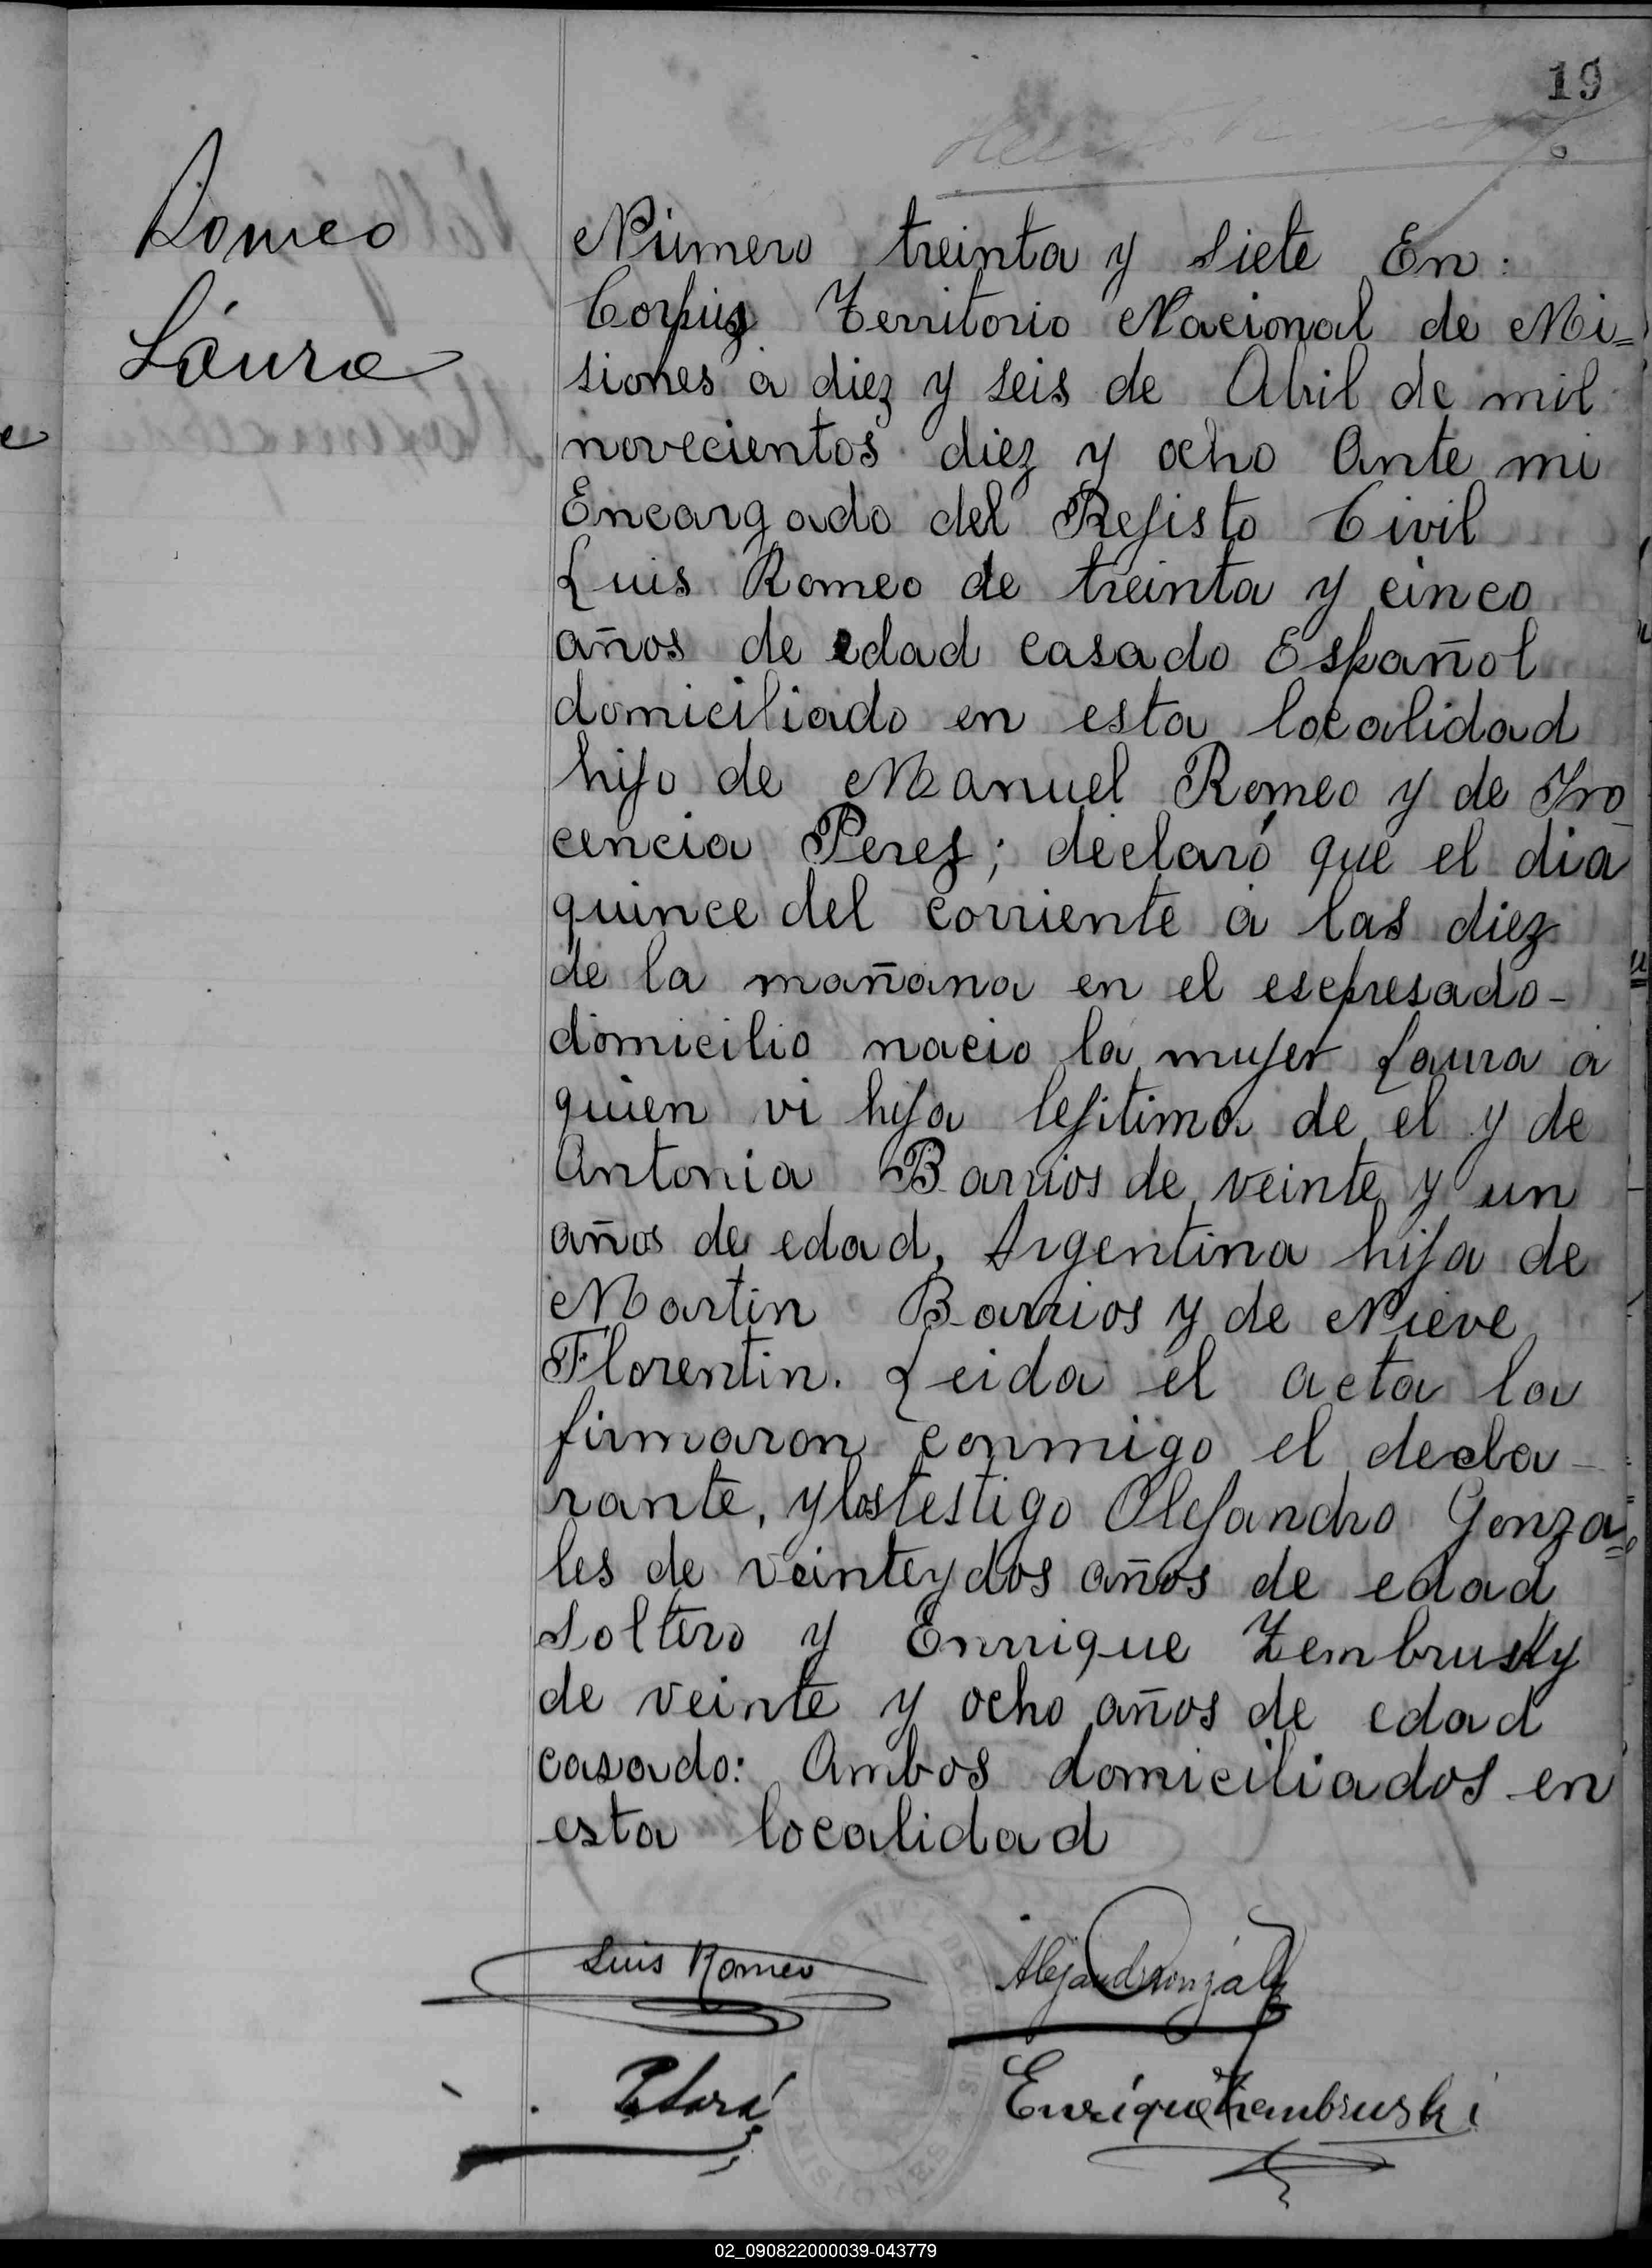 19
Romeo
Laura
Número treinta y siete En
Corpus Territorio Nacional de Mi=
siones a diez y seis de Abril de mil
novecientos diez y ocho Ante mi
Encargado del Rejisto Civil
Luis Romeo de treinta y cinco
años de edad casado Español
domiciliado en esta localidad
hijo de Manuel Romeo y de Ino
cencia Peres; declaró que el dia
quince del corriente a las diez
de la mañana en el escpresado-
domicilio nacio la mujer Laura a
quien vi hija lejitima de el y de
Antonia Barrios de veinte y un
años de edad, Argentina hija de
Martin Barrios y de Nieve
Florentin. Leida el acta la
firmaron conmigo el decla-
rante, y los testigo Alejandro Gonza=
les de veinte y dos años de edad
soltero y Enrique Zembrusky
de veinte y ocho años de edad
casado: Ambos domiciliados en
esta localidad
Luis Romeo
Enrique Zembruski
02_090822000039-043779